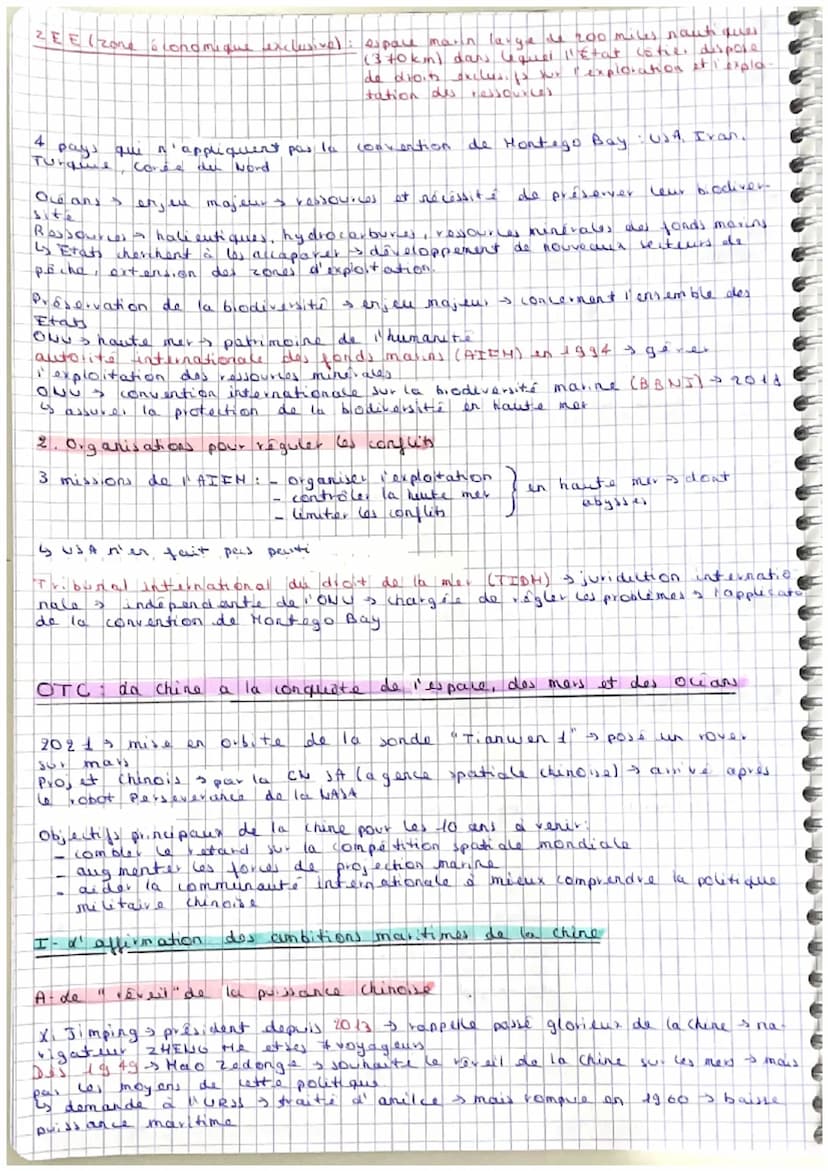 ZEE (zone économique exclusive) : espace marin large de 200 miles nautiques
(370km) dans lequel l'Etat côtier dispose
de droits exclusifs sur l'exploration et l'explo-
tation des ressources
4 pays qui n'appliquent pas la convention de Montego Bay : USA, Iran,
Turquie, Corée du Nord
Océans → enjeu majeur → ressources et nécessité de préserver leur biodiver-
sité
Ressources → halieutiques, hydrocarbures, ressources minérales des fonds marins
↳ Etats cherchent à les accaparer → développement de nouveaux secteurs de
pêche, extension des zones d'exploitation.
Préservation de la biodiversité → enjeu majeur → concernent l'ensemble des
Etats
ONU → haute mer → patrimoine de l'humanité
autorité internationale des fonds marins (AIFM) en 1994 → gérer
l'exploitation des ressources minérales
ONU → convention internationale sur la biodiversité marine (BBNJ) → 2018
↳ assurer la protection de la biodiversité en haute mer
2. Organisations pour réguler les conflits
3 missions de l'AIFM : - organiser l'exploitation
- contrôler la haute mer } en haute mer → dont
- limiter les conflits abysses
↳ USA n'en fait pas parti
Tribunal international du droit de la mer (TIDM) → juridiction internatio
nale → indépendante de l'ONU → chargée de régler les problèmes → l'applicato
de la convention de Montego Bay
OTC : La Chine a la conquête de l'espace, des mers et des océans
2021 → mise en orbite de la sonde "Tianwen 1" → posé un rover
sur mars
Projet chinois → par la CNSA (agence spatiale chinoise) → arrivé après
le robot Perseverance de la NASA
Objectifs principaux de la Chine pour les 10 ans à venir :
- combler le retard sur la compétition spatiale mondiale
- augmenter les forces de projection marine
- aider la communauté internationale à mieux comprendre la politique
militaire chinoise
I- L'affirmation des ambitions maritimes de la chine
A- Le "réveil" de la puissance chinoise
Xi Jimping → président depuis 2013 → rappelle passé glorieux de la chine → na-
vigateur ZHENG HE et ses 7 voyageurs
Dès 1949 → Mao Zedong → souhaite le réveil de la Chine sur les mers → mais
pas les moyens de cette politique
↳ demande à l'URSS → traité d'amitée → mais rompue en 1960 → baisse
puissance maritime